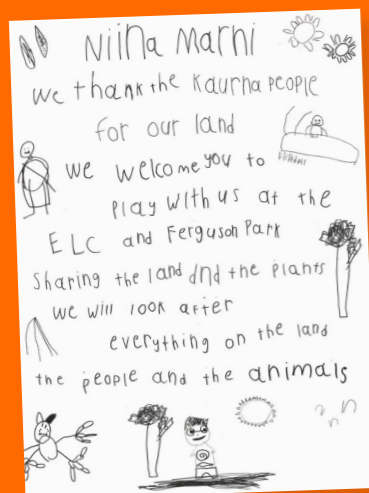 Niina Marni
we thank the Kaurna people
for our land
we welcome you to
play with us at the
ELC and Ferguson Park
sharing the land and the plants
we will look after
everything on the land
the people and the animals